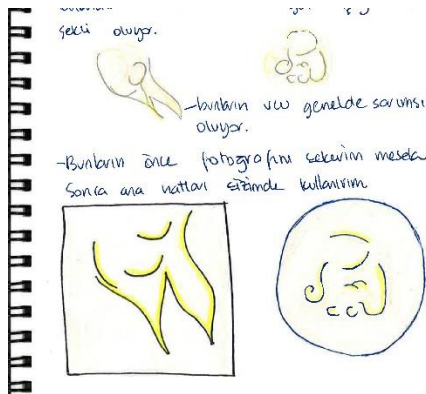 şekli oluyor.
-bunların ucu genelde sarımsı
oluyor.
-Bunların önce fotoğrafını çekerim mesela
sonra ana hatları çizimde kullanırım